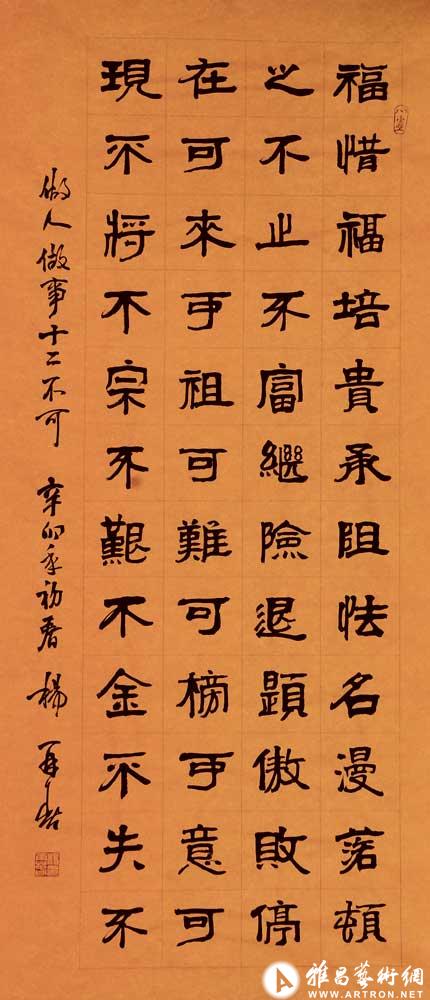 現在之福
不可不惜
將來止福
不可不培
宗祖富貴
不可繼承
艱難險阻
不可退怯
金榜題名
不可傲漫
失意敗落
不可停頓
做人做事十二不可 辛卯年初春 楊再春
雅昌藝術網
WWW.ARTRON.NET